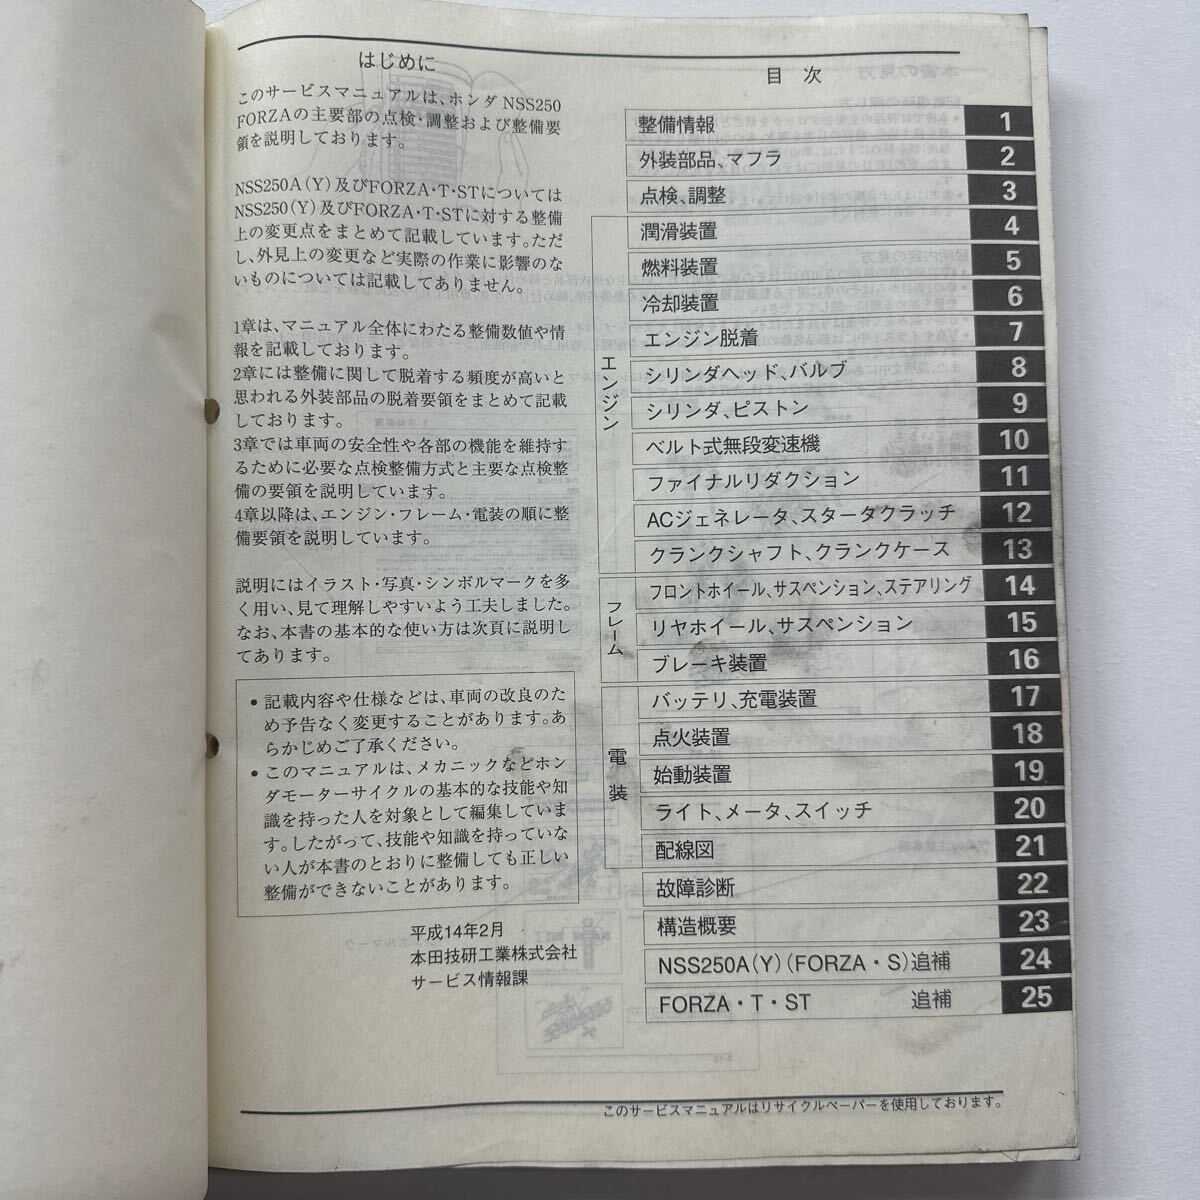 はじめに
このサービスマニュアルは、ホンダ NSS250
FORZAの主要部の点検・調整および整備要
領を説明しております。
NSS250A(Y)及びFORZA・T・STについては
NSS250(Y)及びFORZA・T・STに対する整備
上の変更点をまとめて記載しています。ただ
し、外見上の変更など実際の作業に影響のな
いものについては記載してありません。
1章は、マニュアル全体にわたる整備数値や情
報を記載しております。
2章には整備に関して脱着する頻度が高いと
思われる外装部品の脱着要領をまとめて記載
しております。
3章では車両の安全性や各部の機能を維持す
るために必要な点検整備方式と主要な点検整
備の要領を説明しています。
4章以降は、エンジン・フレーム・電装の順に整
備要領を説明しています。
説明にはイラスト・写真・シンボルマークを多
く用い、見て理解しやすいよう工夫しました。
なお、本書の基本的な使い方は次頁に説明し
てあります。
• 記載内容や仕様などは、車両の改良のた
め予告なく変更することがあります。あ
らかじめご了承ください。
• このマニュアルは、メカニックなどホン
ダモーターサイクルの基本的な技能や知
識を持った人を対象として編集していま
す。したがって、技能や知識を持っていな
い人が本書のとおりに整備しても正しい
整備ができないことがあります。
平成14年2月
本田技研工業株式会社
サービス情報課
目 次
整備情報 1
外装部品、マフラ 2
点検、調整 3
エンジン
潤滑装置 4
燃料装置 5
冷却装置 6
エンジン脱着 7
シリンダヘッド、バルブ 8
シリンダ、ピストン 9
ベルト式無段変速機 10
ファイナルリダクション 11
ACジェネレータ、スタータクラッチ 12
クランクシャフト、クランクケース 13
フレーム
フロントホイール、サスペンション、ステアリング 14
リヤホイール、サスペンション 15
ブレーキ装置 16
電装
バッテリ、充電装置 17
点火装置 18
始動装置 19
ライト、メータ、スイッチ 20
配線図 21
故障診断 22
構造概要 23
NSS250A(Y)(FORZA・S)追補 24
FORZA・T・ST 追補 25
このサービスマニュアルはリサイクルペーパーを使用しております。